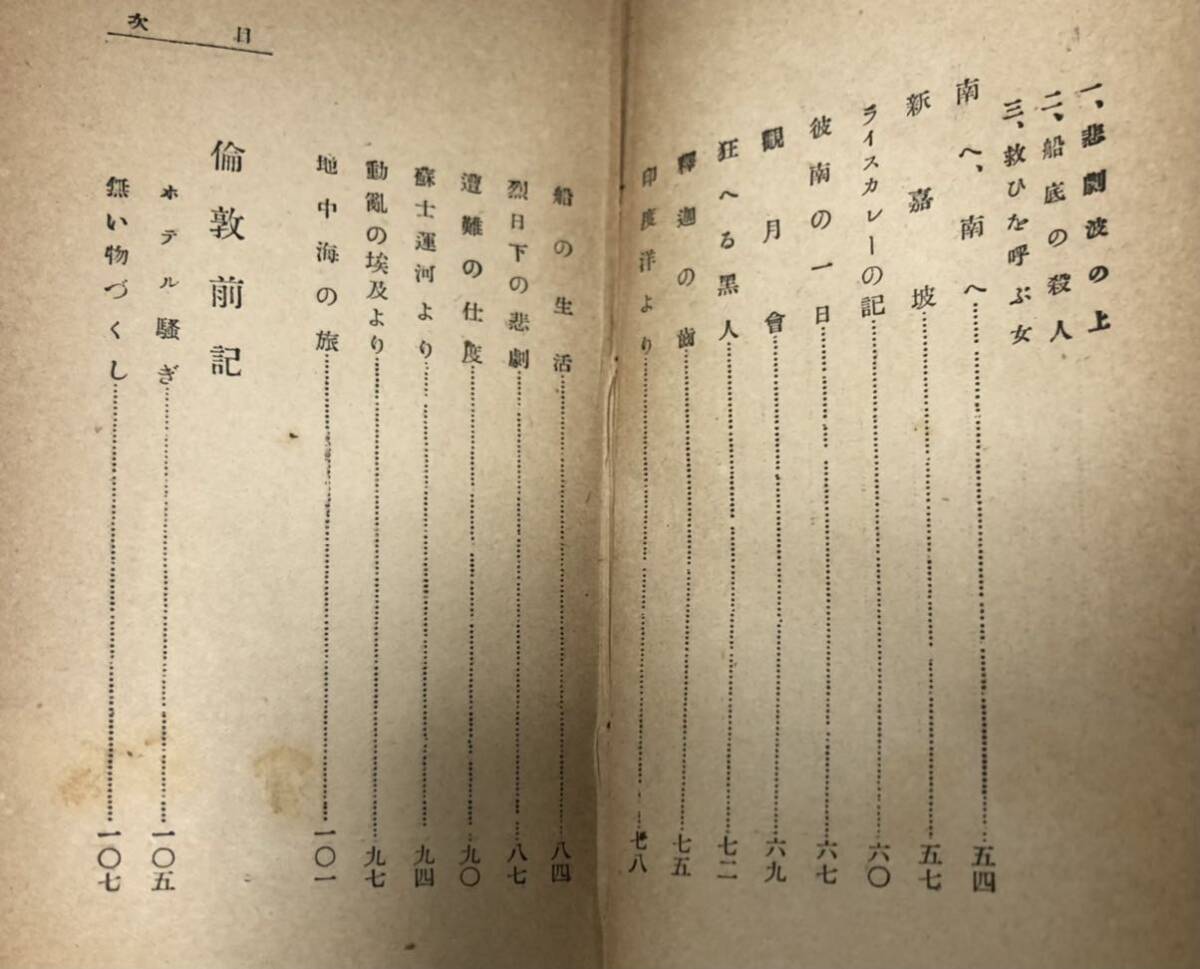 一、悲劇波の上
二、船底の殺人
三、救ひを呼ぶ女
南へ、南へ……五四
新嘉坡……五七
ライスカレーの記……六〇
彼南の一日……六七
觀月會……六九
狂へる黑人……七二
釋迦の齒……七五
印度洋より……七八
目次
船の生活……八四
烈日下の悲劇……八七
遭難の仕度……九〇
蘇士運河より……九四
動亂の埃及より……九七
地中海の旅……一〇一
倫敦前記
ホテル騷ぎ……一〇五
無い物づくし……一〇七